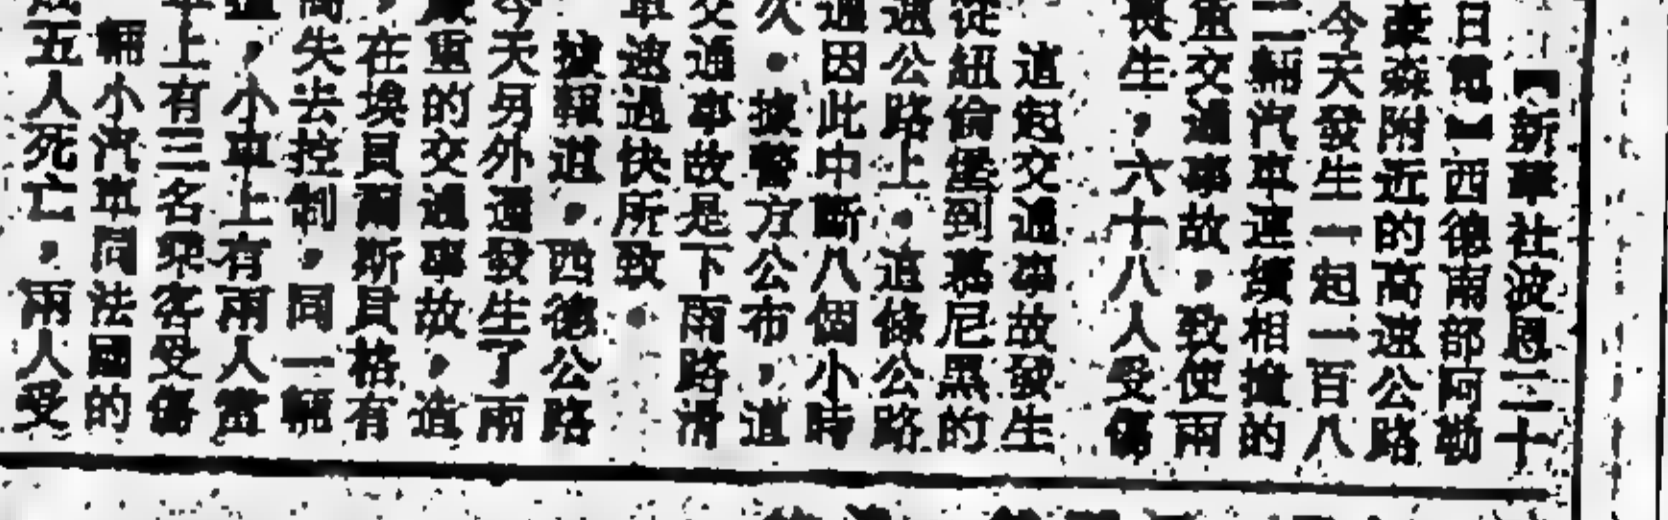 【新華社波恩二十
日電】西德南部阿勒
豪森附近的高速公路
今天發生一起一百八
二輛汽車連續相撞的
重交通事故，致使兩
喪生，六十八人受傷
這起交通事故發生
從紐倫堡到慕尼黑的
速公路上。這條公路
通因此中斷八個小時
久。據警方公布，這
交通事故是下雨路滑
車速過快所致。
據報道，西德公路
今天另外還發生了兩
嚴重的交通事故，這
，在埃貝爾斯貝格有
高失去控制，同一輛
，小車上有兩人當
上有三名乘客受傷
輛小汽車同法國的
五人死亡，兩人受